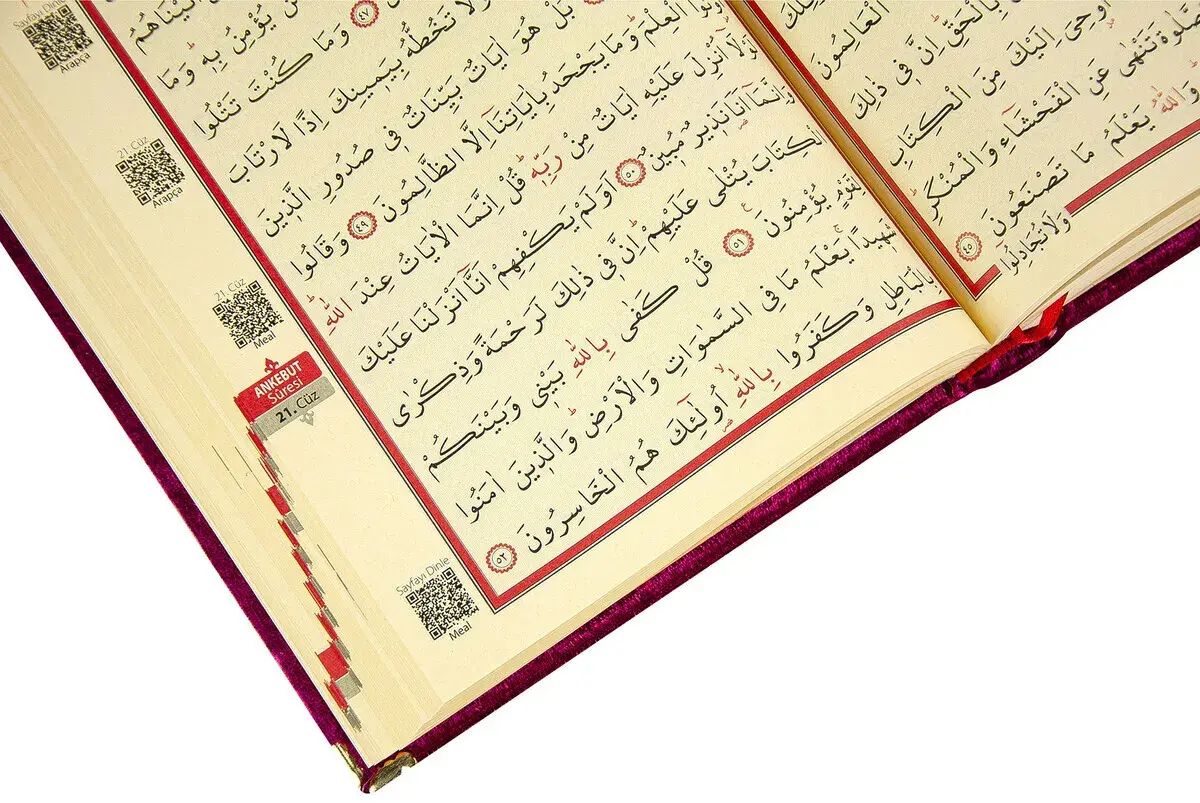 الْعَالِمُونَ
بِالْحَقِّ اِنَّ فِي ذٰلِكَ
اُو۫حِيَ اِلَيْكَ مِنَ الْكِتَابِ
تَنْهٰى عَنِ الْفَحْشَٓاءِ وَالْمُنْكَرِ
وَاللّٰهُ يَعْلَمُ مَا تَصْنَعُونَ ٤٥
وَلَا تُجَادِلُٓوا
اٰتَيْنَاهُمُ
مَنْ يُؤْمِنُ بِه۪ وَمَا
٤٧ وَمَا كُنْتَ تَتْلُوا
وَلَا تَخُطُّهُ بِيَم۪ينِكَ اِذًا لَارْتَابَ
بَلْ هُوَ اٰيَاتٌ بَيِّنَاتٌ ف۪ي صُدُورِ الَّذ۪ينَ
الْعِلْمَ وَمَا يَجْحَدُ بِاٰيَاتِنَٓا اِلَّا الظَّالِمُونَ ٤٩ وَقَالُوا
لَوْلَٓا اُنْزِلَ عَلَيْهِ اٰيَاتٌ مِنْ رَبِّه۪ قُلْ اِنَّمَا الْاٰيَاتُ عِنْدَ اللّٰهِ
وَاِنَّمَٓا اَنَا۬ نَذ۪يرٌ مُب۪ينٌ ٥٠ اَوَلَمْ يَكْفِهِمْ اَنَّٓا اَنْزَلْنَا عَلَيْكَ
الْكِتَابَ يُتْلٰى عَلَيْهِمْ اِنَّ ف۪ي ذٰلِكَ لَرَحْمَةً وَذِكْرٰى
لِقَوْمٍ يُؤْمِنُونَ ٥١ قُلْ كَفٰى بِاللّٰهِ بَيْن۪ي وَبَيْنَكُمْ
شَه۪يدًا يَعْلَمُ مَا فِي السَّمٰوَاتِ وَالْاَرْضِ وَالَّذ۪ينَ اٰمَنُوا
بِالْبَاطِلِ وَكَفَرُوا بِاللّٰهِ اُو۬لٰٓئِكَ هُمُ الْخَاسِرُونَ ٥٢
Sayfayı Dinle
Arapça
21. Cüz
Arapça
21. Cüz
Meal
ANKEBUT
Sûresi
21. Cüz
Sayfayı Dinle
Meal